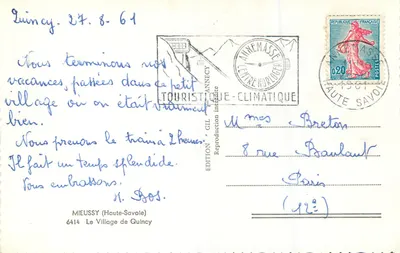 Quincy. 27.8.61
Nous terminons nos
vacances, passées dans ce petit
village où on était vraiment
bien.
Nous prenons le train à 2 heures.
Il fait un temps splendide.
Vous embrassons.
M. Bos.
MIEUSSY (Haute-Savoie)
6414 Le Village de Quincy
EDITION GIL ANNECY
Reproduction interdite
ANNEMASSE
TOURISTIQUE-CLIMATIQUE
0,20
HAUTE SAVOIE
Mmes Breton
8 rue Baulant
Paris
(12e)